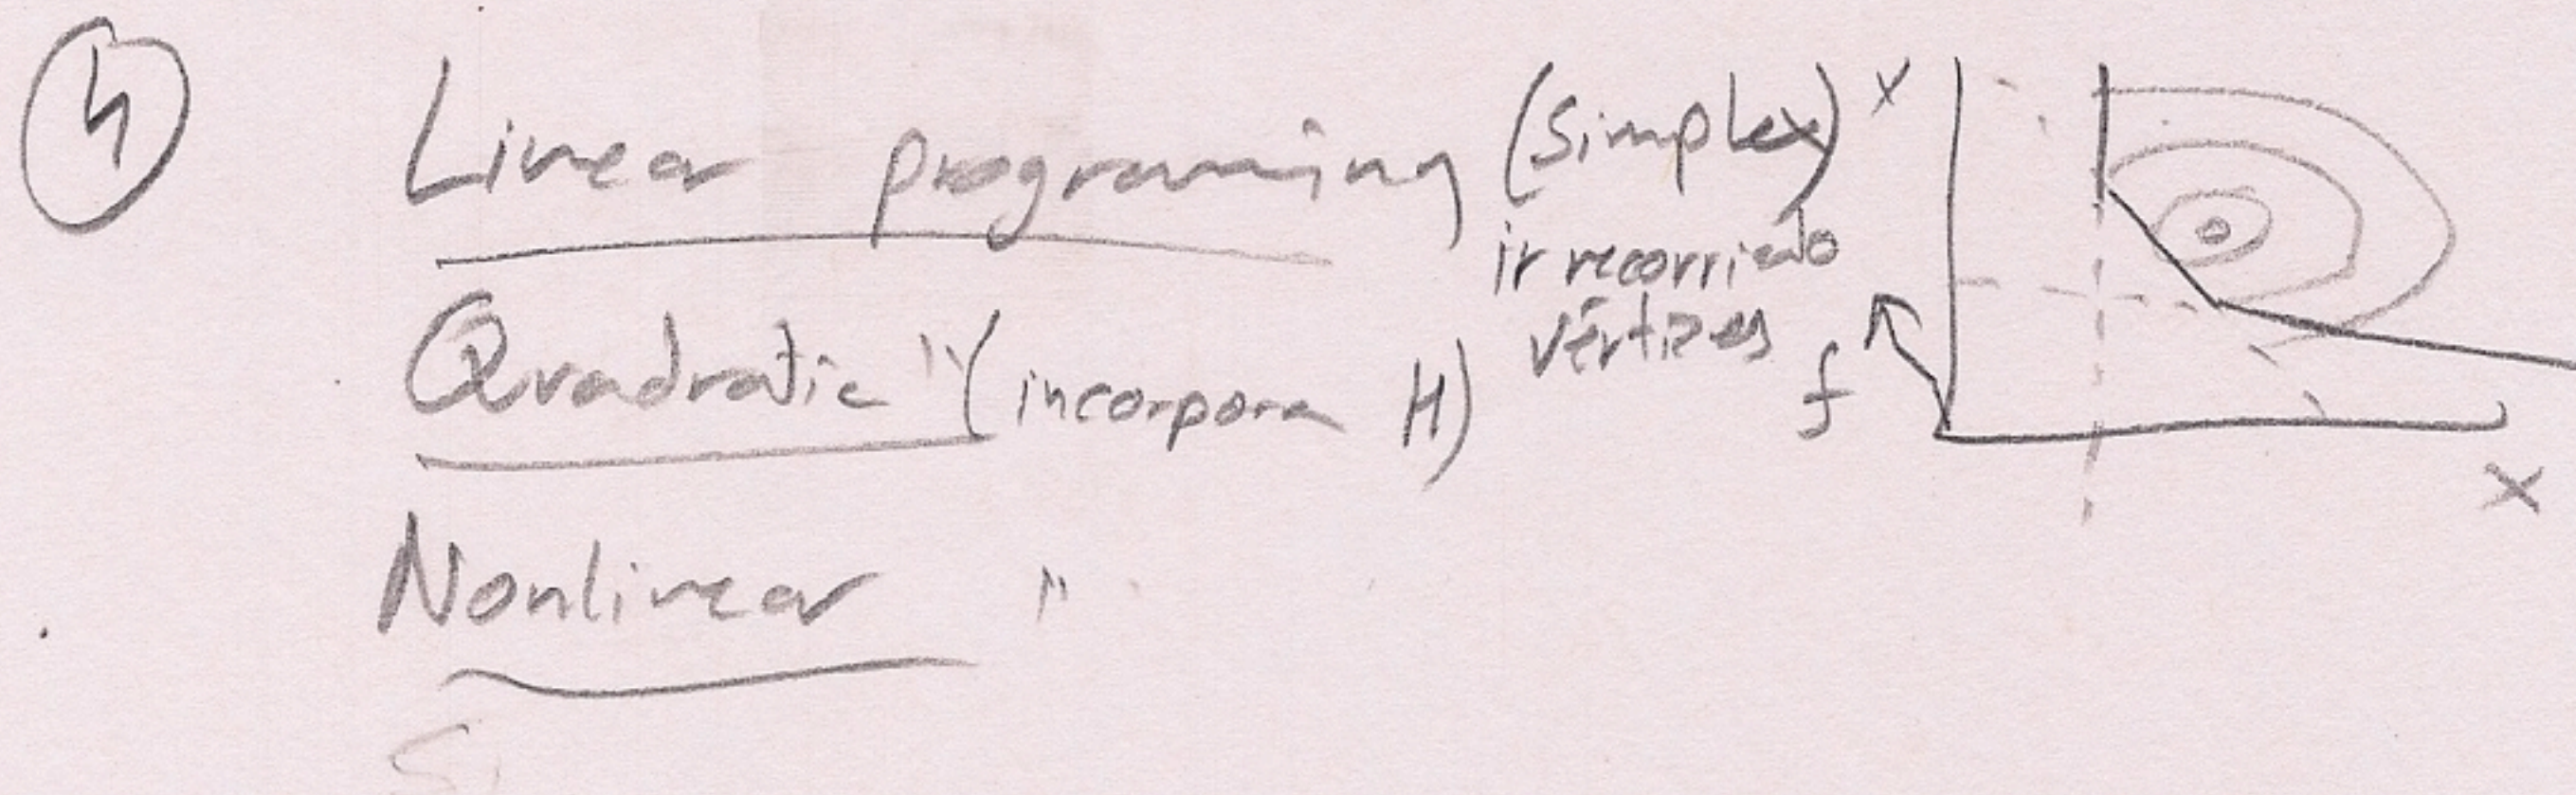 4
Linear programing (simplex)
ir recorriendo
vértizes
Quadratic " (incorpora H)
Nonlinear "
x
f
x